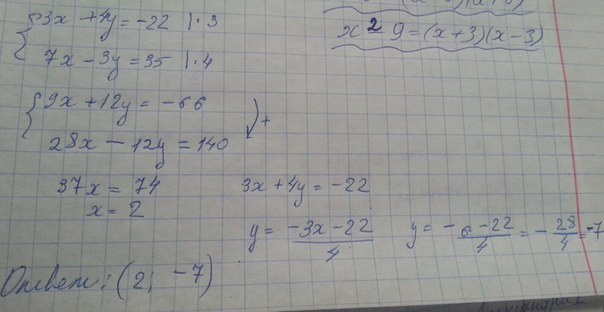 3x + 4y = -22 | · 3
7x - 3y = 35 | · 4
9x + 12y = -66
+
28x - 12y = 140
37x = 74
x = 2
x² - 9 = (x+3)(x-3)
3x + 4y = -22
y = (-3x - 22)/4
y = (-6 - 22)/4 = -28/4 = -7
Ответ: (2; -7)